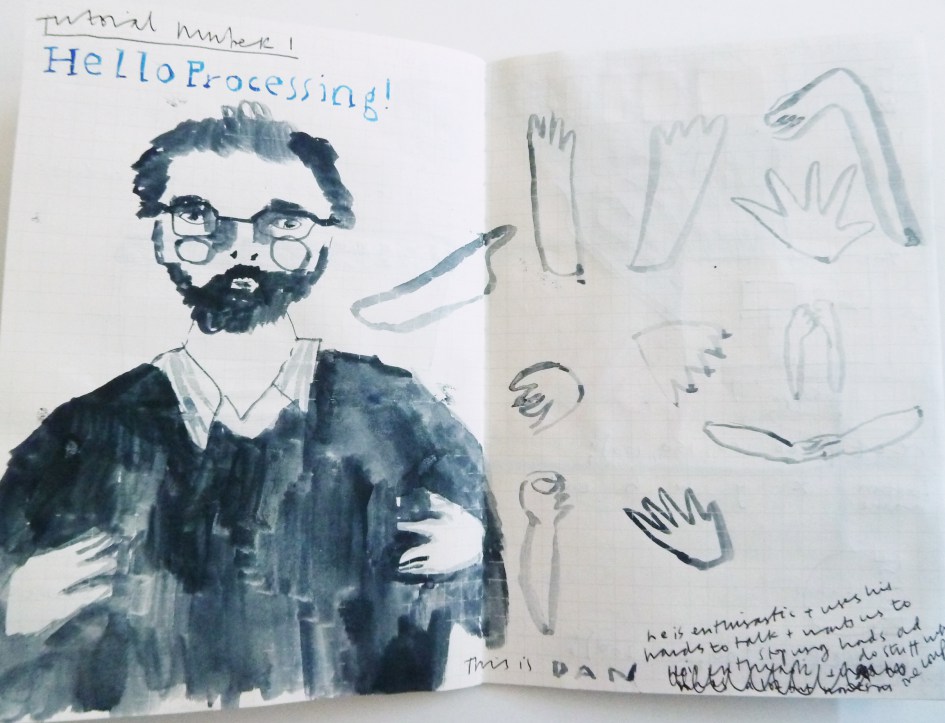 Tutorial Number 1
Hello Processing!
This is DAN
he is enthusiastic + uses his
hands to talk + wants us to
hands and
do stuff